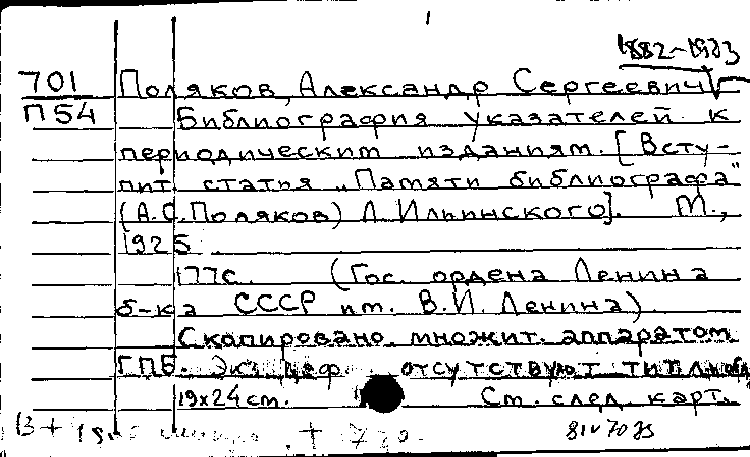 1
1882-1923
701 Поляков, Александр Сергеевич
П54 Библиография указателей к
периодическим изданиям. [Всту-
пит. статья „Памяти библиографа"
(А.С.Поляков) Л. Ильинского]. М.,
1925.
177с. (Гос. ордена Ленина
б-ка СССР им. В.И. Ленина)
Скопировано множит. аппаратом
ГПБ. Экз. деф. отсутствуют титл. и обл.
19x24cm. Ст. след. карт.
В+